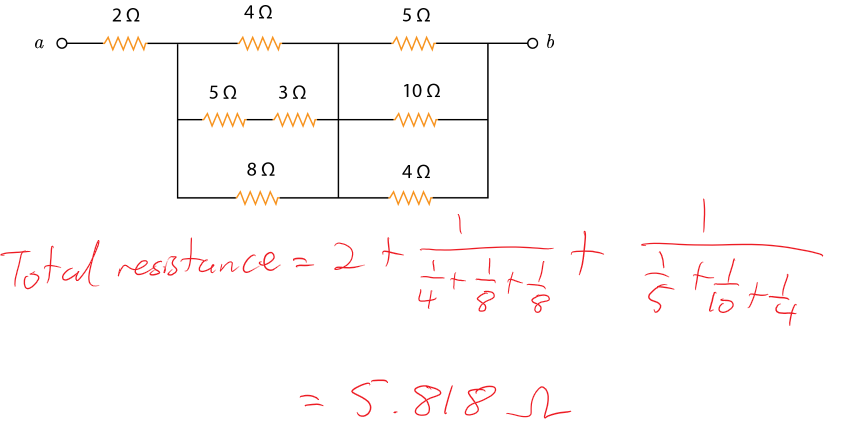 2 Ω 4 Ω 5 Ω
a b
5 Ω 3 Ω 10 Ω
8 Ω 4 Ω
Total resistance = 2 + 1/(1/4 + 1/8 + 1/8) + 1/(1/5 + 1/10 + 1/4)
= 5.818 Ω